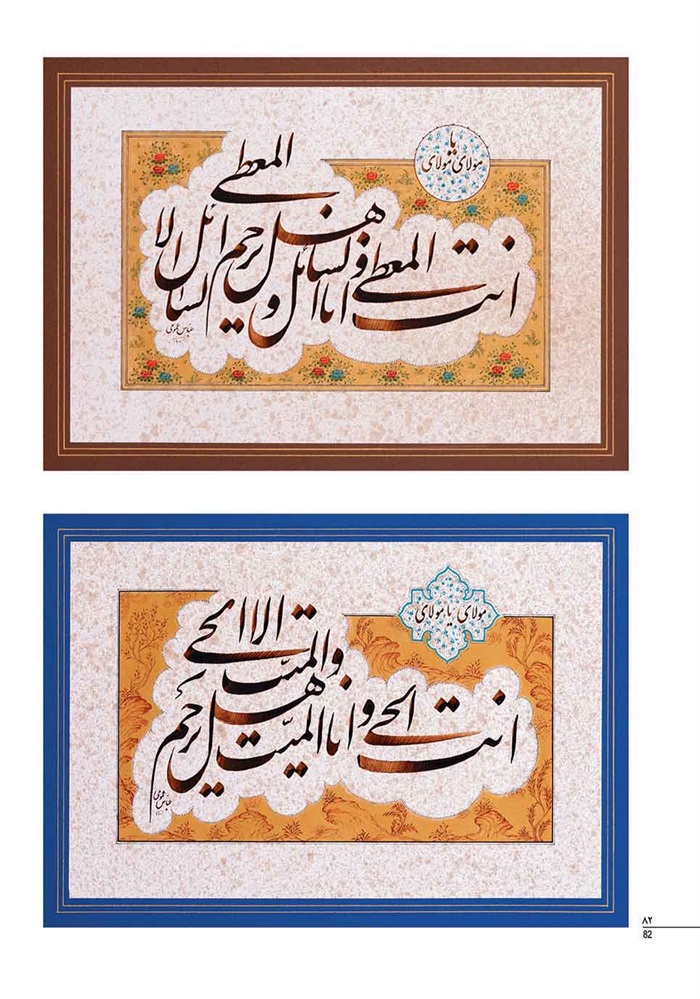 مولای یا مولای
انت المعطی و انا السائل و هل یرحم السائل الا المعطی
مولای یا مولای
انت الحی و انا المیت و هل یرحم المیت الا الحی
۸۲
82